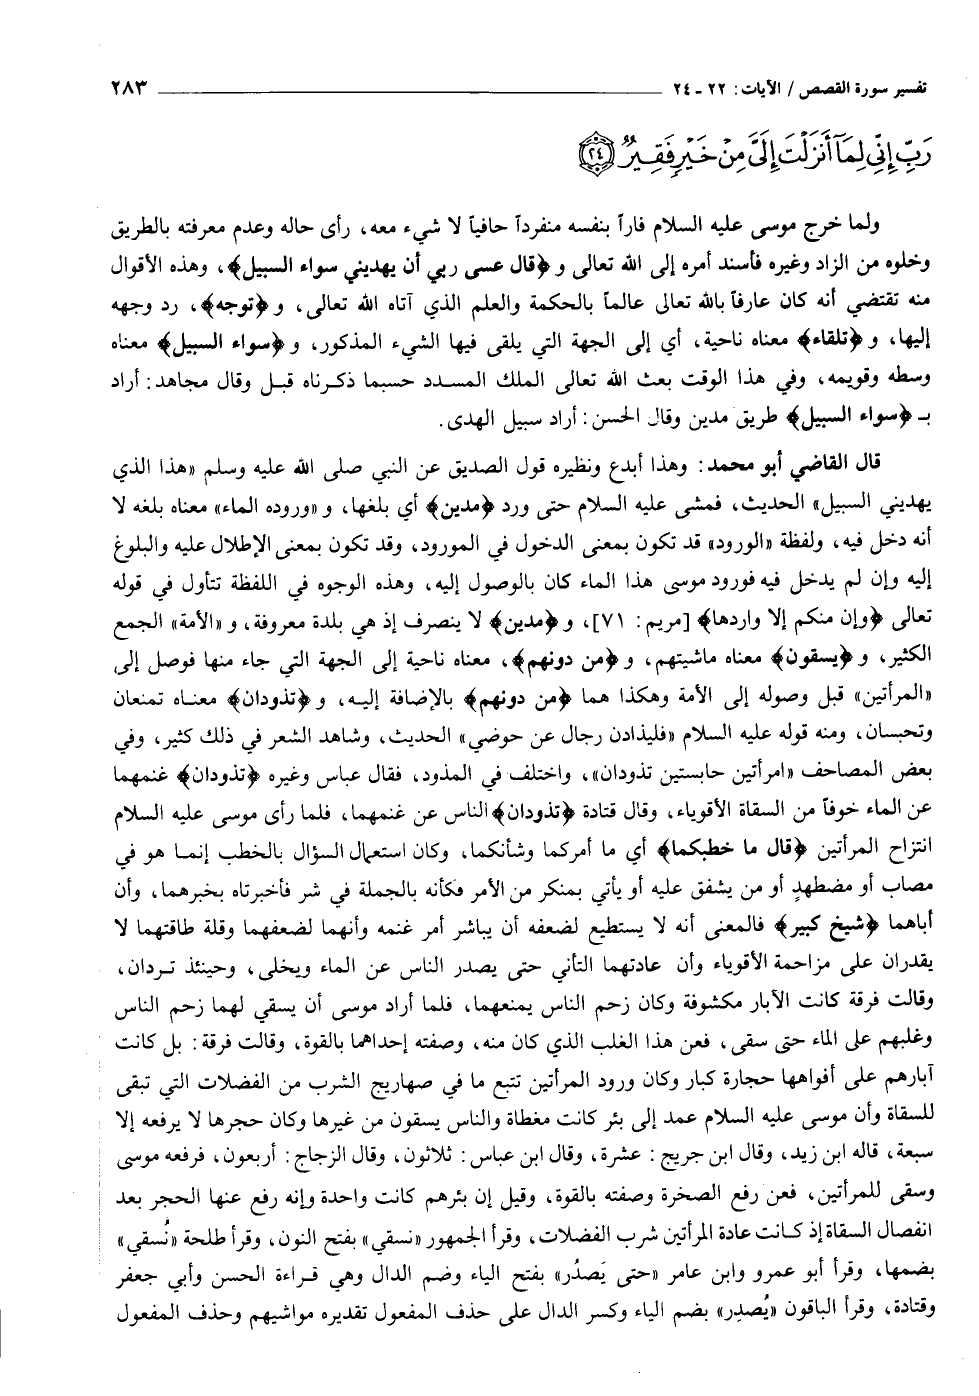 تفسير سورة القصص / الآيات : ٢٢ - ٢٤ ٢٨٣
رَبِّ إِنِّي لِمَا أَنزَلْتَ إِلَيَّ مِنْ خَيْرٍ فَقِيرٌ ٢٤
ولما خرج موسى عليه السلام فاراً بنفسه منفرداً حافياً لا شيء معه، رأى حاله وعدم معرفته بالطريق
وخلوه من الزاد وغيره فأسند أمره إلى الله تعالى و ﴿قال عسى ربي أن يهديني سواء السبيل﴾، وهذه الأقوال
منه تقتضي أنه كان عارفاً بالله تعالى عالماً بالحكمة والعلم الذي آتاه الله تعالى، و ﴿توجه﴾، رد وجهه
إليها، و ﴿تلقاء﴾ معناه ناحية، أي إلى الجهة التي يلقى فيها الشيء المذكور، و ﴿سواء السبيل﴾ معناه
وسطه وقويمه، وفي هذا الوقت بعث الله تعالى الملك المسدد حسبما ذكرناه قبل وقال مجاهد: أراد
بـ ﴿سواء السبيل﴾ طريق مدين وقال الحسن: أراد سبيل الهدى.
قال القاضي أبو محمد: وهذا أبدع ونظيره قول الصديق عن النبي صلى الله عليه وسلم «هذا الذي
يهديني السبيل» الحديث، فمشى عليه السلام حتى ورد ﴿مدين﴾ أي بلغها، و «وروده الماء» معناه بلغه لا
أنه دخل فيه، ولفظة «الورود» قد تكون بمعنى الدخول في المورود، وقد تكون بمعنى الإطلال عليه والبلوغ
إليه وإن لم يدخل فيه فورود موسى هذا الماء كان بالوصول إليه، وهذه الوجوه في اللفظة تتأول في قوله
تعالى ﴿وإن منكم إلا واردها﴾ [مريم: ٧١]، و ﴿مدين﴾ لا ينصرف إذ هي بلدة معروفة، و «الأمة» الجمع
الكثير، و ﴿يسقون﴾ معناه ماشيتهم، و ﴿من دونهم﴾، معناه ناحية إلى الجهة التي جاء منها فوصل إلى
«المرأتين» قبل وصوله إلى الأمة وهكذا هما ﴿من دونهم﴾ بالإضافة إليه، و ﴿تذودان﴾ معناه تمنعان
وتحبسان، ومنه قوله عليه السلام «فليذادن رجال عن حوضي» الحديث، وشاهد الشعر في ذلك كثير، وفي
بعض المصاحف «امرأتين حابستين تذودان»، واختلف في المذود، فقال عباس وغيره ﴿تذودان﴾ غنمهما
عن الماء خوفاً من السقاة الأقوياء، وقال قتادة ﴿تذودان﴾ الناس عن غنمهما، فلما رأى موسى عليه السلام
انتزاح المرأتين ﴿قال ما خطبكما﴾ أي ما أمركما وشأنكما، وكان استعمال السؤال بالخطب إنما هو في
مصاب أو مضطهدٍ أو من يشفق عليه أو يأتي بمنكر من الأمر فكأنه بالجملة في شر فأخبرتاه بخبرهما، وأن
أباهما ﴿شيخ كبير﴾ فالمعنى أنه لا يستطيع لضعفه أن يباشر أمر غنمه وأنهما لضعفهما وقلة طاقتهما لا
يقدران على مزاحمة الأقوياء وأن عادتهما التأني حتى يصدر الناس عن الماء ويخلى، وحينئذ تردان،
وقالت فرقة كانت الآبار مكشوفة وكان زحم الناس يمنعهما، فلما أراد موسى أن يسقي لهما زحم الناس
وغلبهم على الماء حتى سقى، فعن هذا الغلب الذي كان منه، وصفته إحداهما بالقوة، وقالت فرقة: بل كانت
آبارهم على أفواهها حجارة كبار وكان ورود المرأتين تتبع ما في صهاريج الشرب من الفضلات التي تبقى
للسقاة وأن موسى عليه السلام عمد إلى بئر كانت مغطاة والناس يسقون من غيرها وكان حجرها لا يرفعه إلا
سبعة، قاله ابن زيد، وقال ابن جريج: عشرة، وقال ابن عباس: ثلاثون، وقال الزجاج: أربعون، فرفعه موسى
وسقى للمرأتين، فعن رفع الصخرة وصفته بالقوة، وقيل إن بئرهم كانت واحدة وإنه رفع عنها الحجر بعد
انفصال السقاة إذ كانت عادة المرأتين شرب الفضلات، وقرأ الجمهور «نسقي» بفتح النون، وقرأ طلحة «نُسقي»
بضمها، وقرأ أبو عمرو وابن عامر «حتى يَصدُر» بفتح الياء وضم الدال وهي قراءة الحسن وأبي جعفر
وقتادة، وقرأ الباقون «يُصدِر» بضم الياء وكسر الدال على حذف المفعول تقديره مواشيهم وحذف المفعول